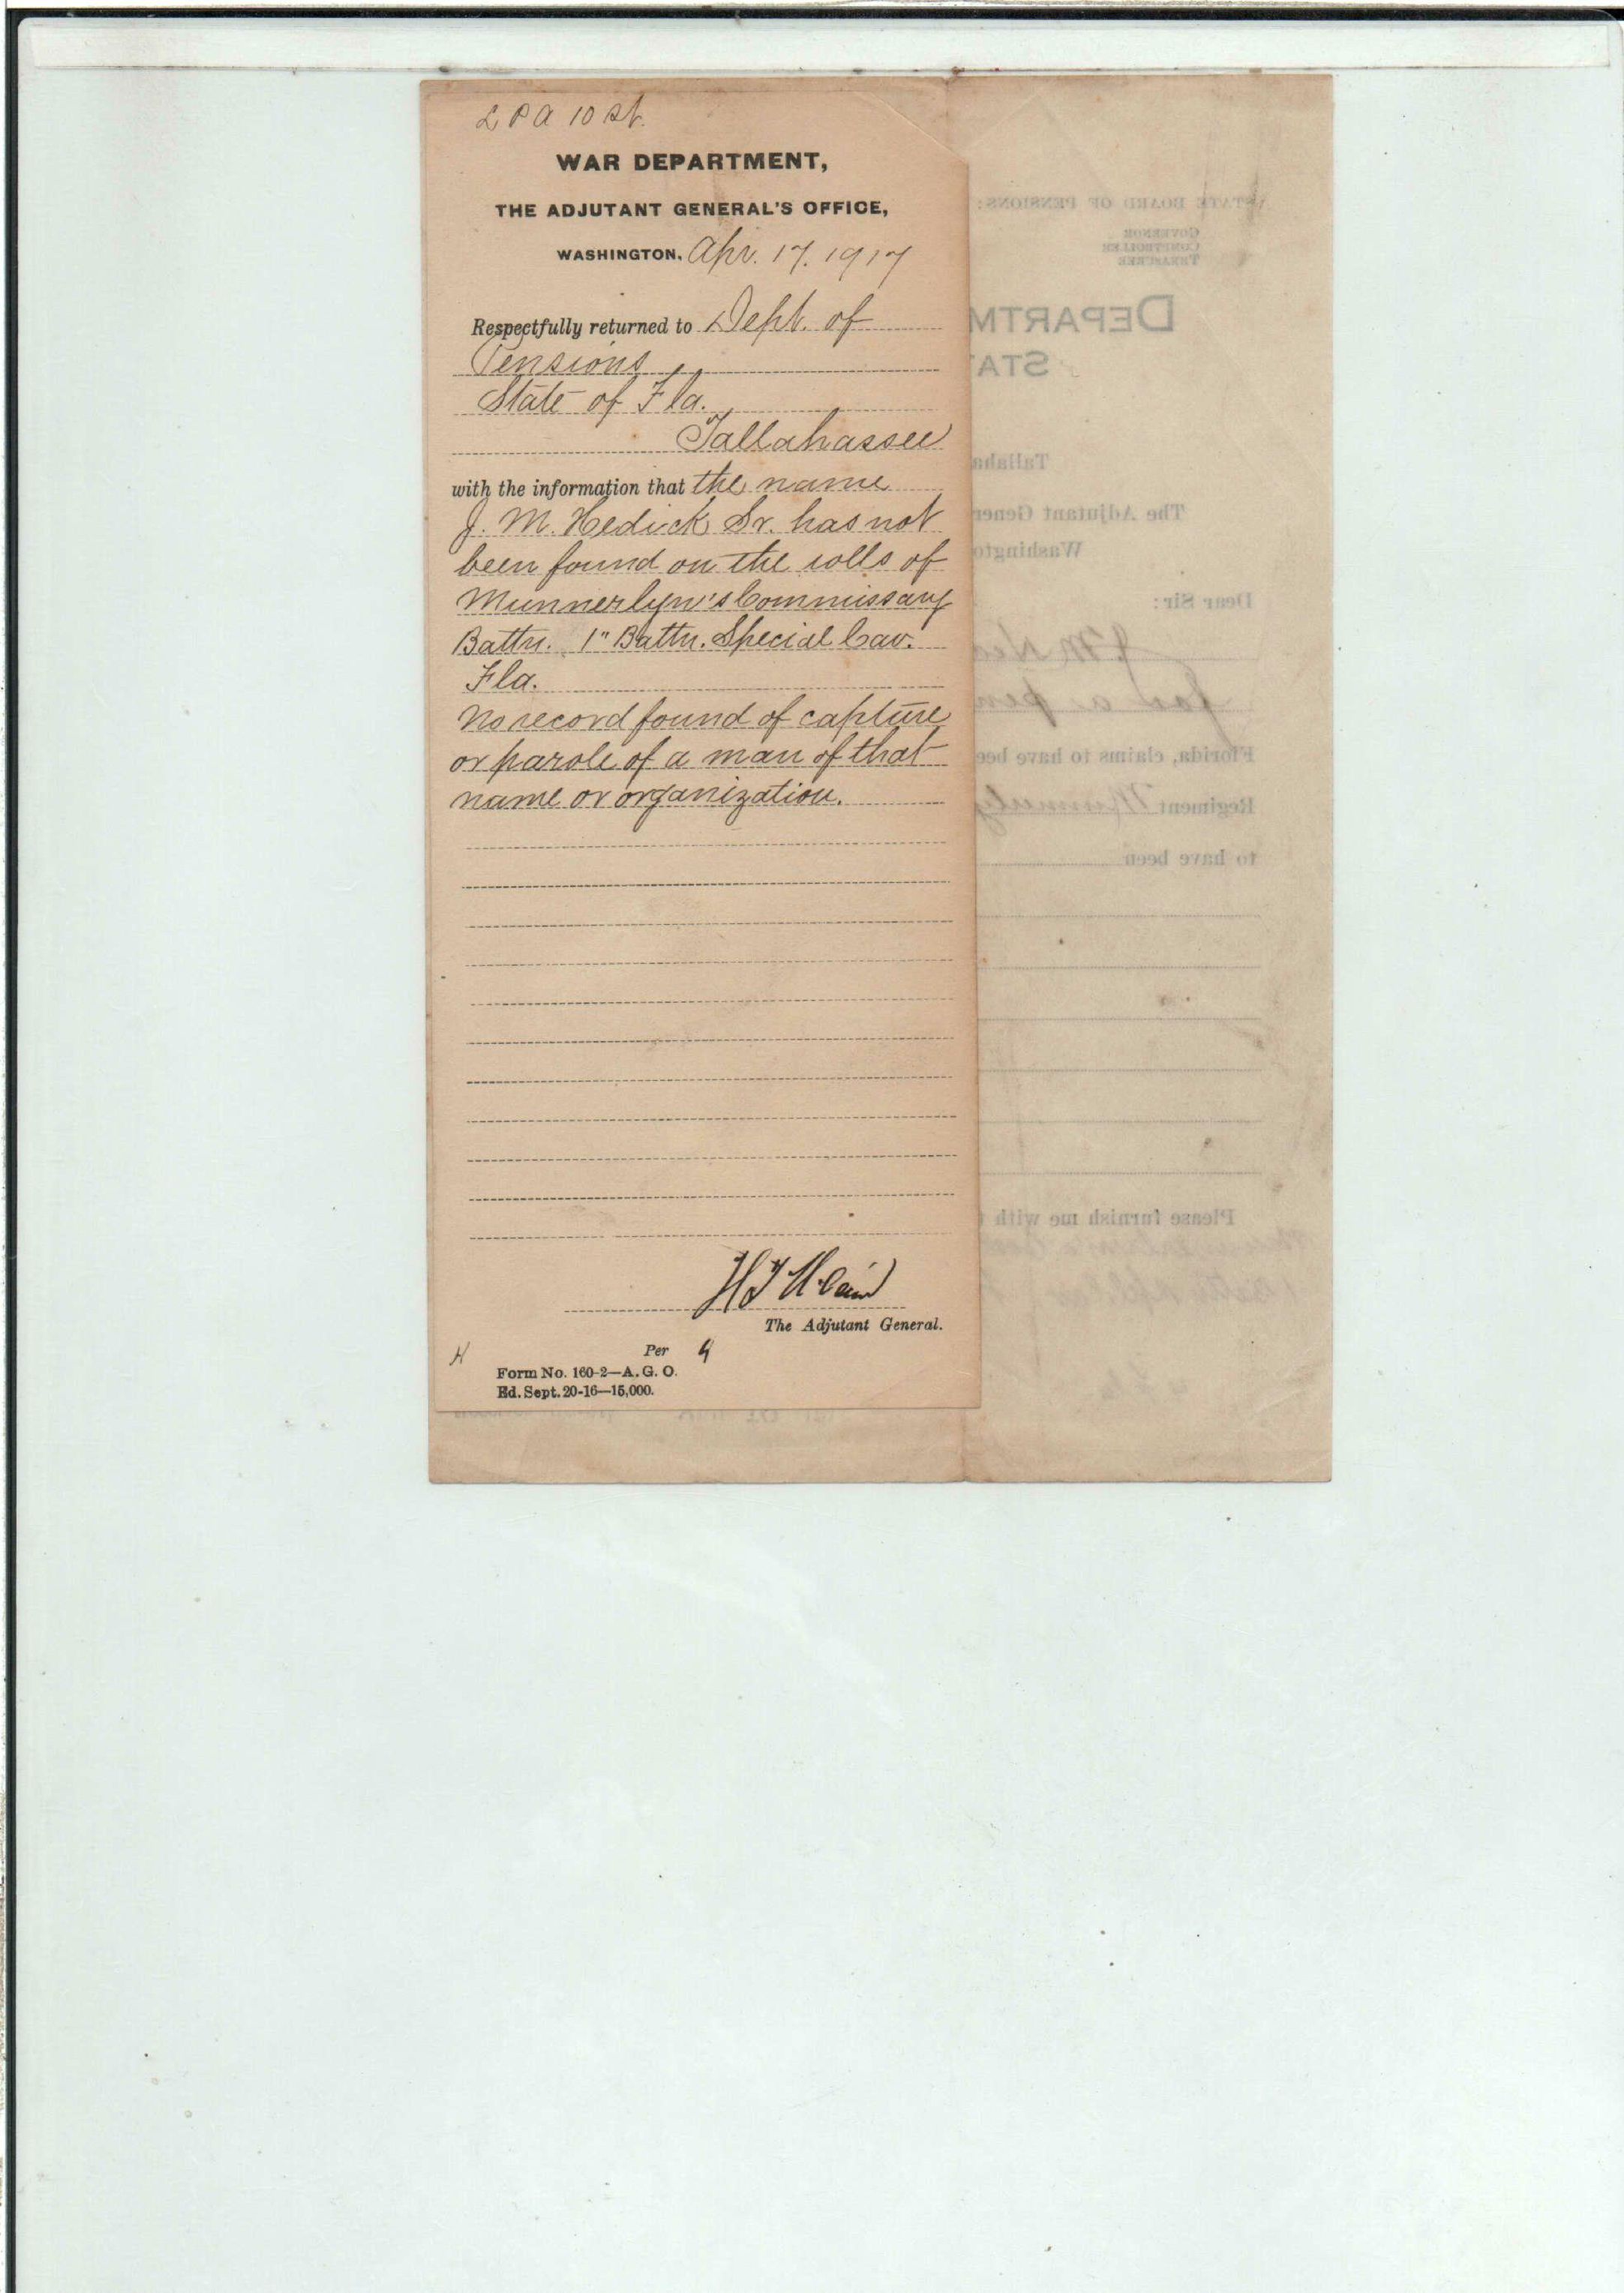 L P A 10 st.
WAR DEPARTMENT,
THE ADJUTANT GENERAL'S OFFICE,
WASHINGTON, Apr. 17. 1917
Respectfully returned to Dept. of
Pensions
State of Fla.
Tallahassee
with the information that the name
J. M. Hedick Sr. has not
been found on the rolls of
Munnerlyn's Commissary
Battn. 1" Battn. Special Cav.
Fla.
No record found of capture
or parole of a man of that
name or organization.
The Adjutant General.
Per
H
Form No. 160-2—A. G. O.
Ed. Sept. 20-16—15,000.
STATE BOARD OF PENSIONS:
GOVERNOR
COMPTROLLER
TREASURER
DEPARTM
STA
Tallaha
The Adjutant Gener
Washingto
Dear Sir:
J. M. Hed
for a pen
Florida, claims to have bee
Regiment Munnerly
to have been
Please furnish me with